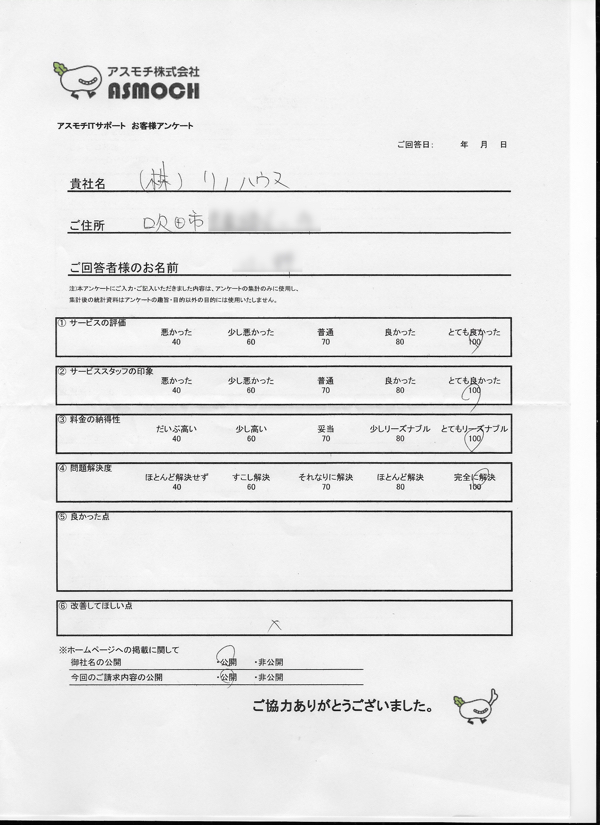 アスモチ株式会社
ASMOCH
アスモチITサポート お客様アンケート
ご回答日: 年 月 日
貴社名 (株)リノハウス
ご住所 吹田市
ご回答者様のお名前
注)本アンケートにご入力・ご記入いただきました内容は、アンケートの集計のみに使用し、
集計後の統計資料はアンケートの趣旨・目的以外の目的には使用いたしません。
① サービスの評価
悪かった 少し悪かった 普通 良かった とても良かった
40 60 70 80 100
② サービススタッフの印象
悪かった 少し悪かった 普通 良かった とても良かった
40 60 70 80 100
③ 料金の納得性
だいぶ高い 少し高い 妥当 少しリーズナブル とてもリーズナブル
40 60 70 80 100
④ 問題解決度
ほとんど解決せず すこし解決 それなりに解決 ほとんど解決 完全に解決
40 60 70 80 100
⑤ 良かった点
⑥ 改善してほしい点
×
※ホームページへの掲載に関して
御社名の公開 ・公開 ・非公開
今回のご請求内容の公開 ・公開 ・非公開
ご協力ありがとうございました。